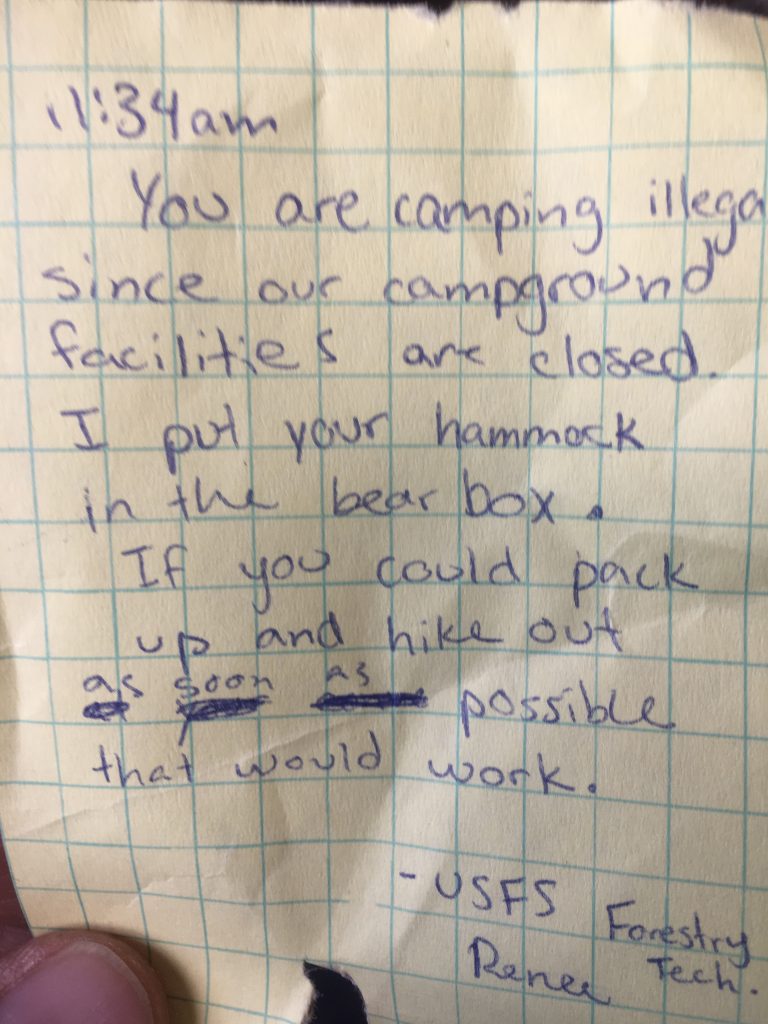 11:34am
You are camping illega
since our campground
facilities are closed.
I put your hammock
in the bear box.
If you could pack
up and hike out
as soon as possible
that would work.
- USFS Forestry Tech.
Renee